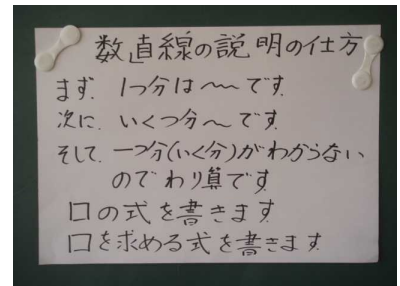 数直線の説明の仕方
まず、1つ分は〜です
次に、いくつ分〜です
そして、一つ分(いく分)がわからない
のでわり算です
口の式を書きます
口を求める式を書きます